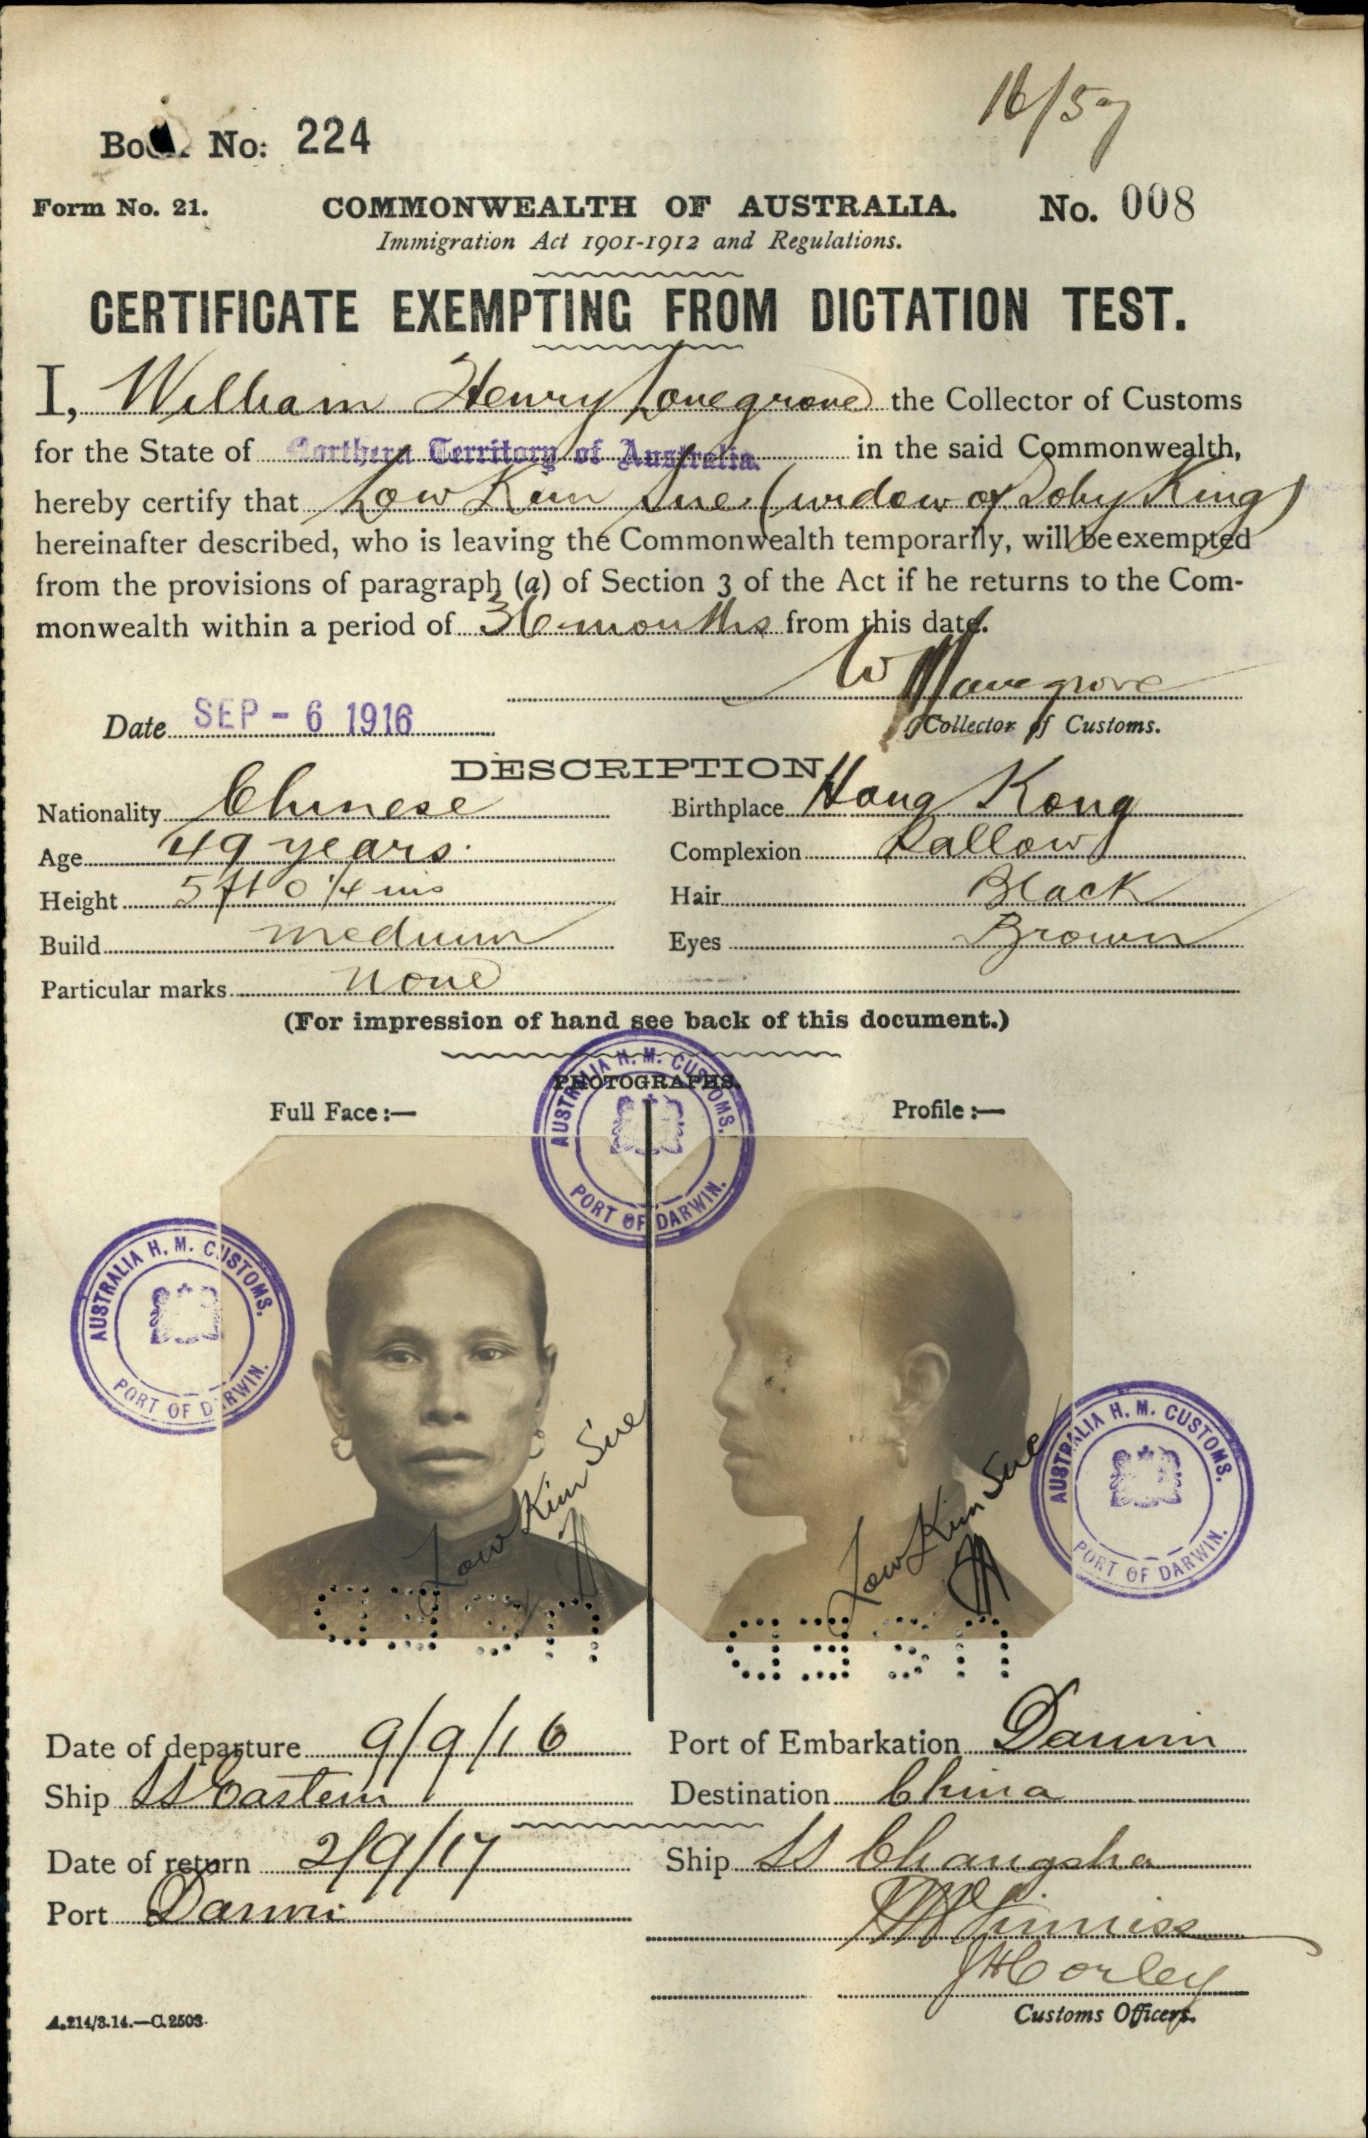 16/57
Book No: 224
Form No. 21. COMMONWEALTH OF AUSTRALIA. No. 008
Immigration Act 1901-1912 and Regulations.
CERTIFICATE EXEMPTING FROM DICTATION TEST.
I, William Henry Lovegrove the Collector of Customs
for the State of Northern Territory of Australia. in the said Commonwealth,
hereby certify that Low Kim Sue (widow of Doby King)
hereinafter described, who is leaving the Commonwealth temporarily, will be exempted
from the provisions of paragraph (a) of Section 3 of the Act if he returns to the Com-
monwealth within a period of 36 months from this date.
W Lovegrove
Date SEP - 6 1916 Collector of Customs.
DESCRIPTION
Nationality Chinese Birthplace Hong Kong
Age 49 years. Complexion Sallow
Height 5 ft 0 1/4 ins Hair Black
Build medium Eyes Brown
Particular marks none
(For impression of hand see back of this document.)
PHOTOGRAPHS.
Full Face:— Profile:—
AUSTRALIA H. M. CUSTOMS. PORT OF DARWIN.
AUSTRALIA H. M. CUSTOMS. PORT OF DARWIN.
AUSTRALIA H. M. CUSTOMS. PORT OF DARWIN.
Low Kim Sue
Low Kim Sue
USED
USED
Date of departure 9/9/16 Port of Embarkation Darwin
Ship SS Eastern Destination China
Date of return 2/9/17 Ship SS Changsha
Port Darwin
JHCorley
Customs Officers.
A.214/3.14.—C.2503.